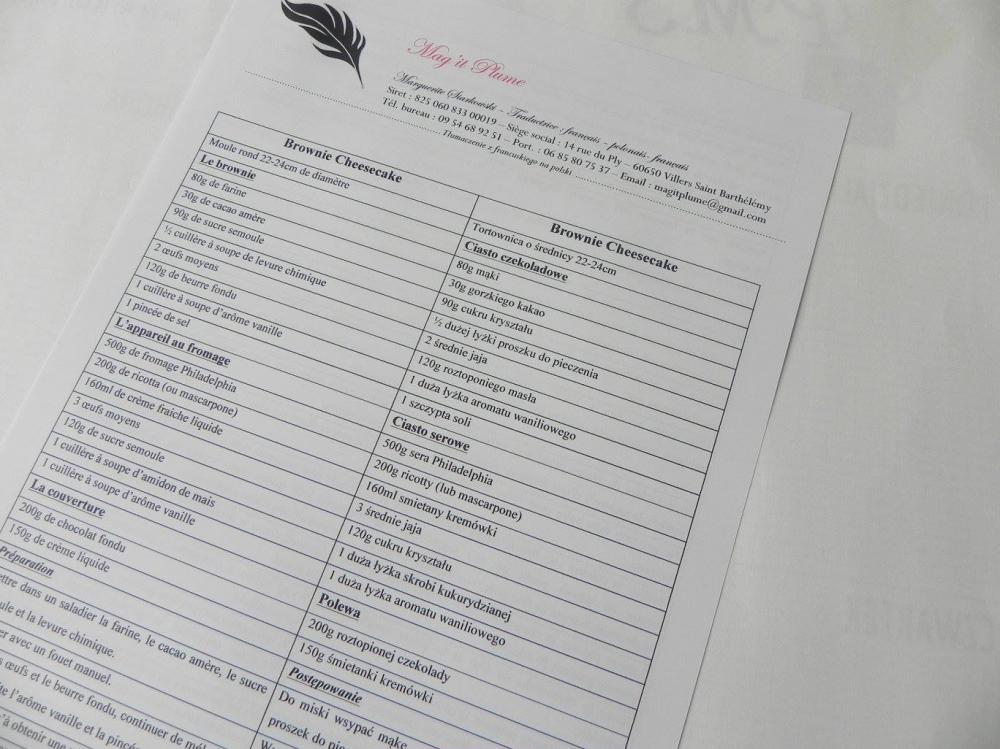 Mag'it Plume
Marguerite Siarkowski – Traductrice français - polonais - français
Siret : 825 060 833 00019 – Siège social : 14 rue du Ply – 60650 Villers Saint Barthélémy
Tél. bureau : 09 54 68 92 51 – Port. : 06 85 80 75 37 – Email : magitplume@gmail.com
Tłumaczenie z francuskiego na polski
Brownie Cheesecake
Moule rond 22-24cm de diamètre
Le brownie
80g de farine
30g de cacao amère
90g de sucre semoule
½ cuillère à soupe de levure chimique
2 œufs moyens
120g de beurre fondu
1 cuillère à soupe d'arôme vanille
1 pincée de sel
L'appareil au fromage
500g de fromage Philadelphia
200g de ricotta (ou mascarpone)
160ml de crème fraiche liquide
3 œufs moyens
120g de sucre semoule
1 cuillère à soupe d'amidon de mais
1 cuillère à soupe d'arôme vanille
La couverture
200g de chocolat fondu
150g de crème liquide
Préparation
ettre dans un saladier la farine, le cacao amère, le sucre
ule et la levure chimique.
er avec un fouet manuel.
s œufs et le beurre fondu, continuer de mél
te l'arôme vanille et la pincé
'à obtenir une
Brownie Cheesecake
Tortownica o średnicy 22-24cm
Ciasto czekoladowe
80g mąki
30g gorzkiego kakao
90g cukru kryształu
½ dużej łyżki proszku do pieczenia
2 średnie jaja
120g roztoponiego masła
1 duża łyżka aromatu waniliowego
1 szczypta soli
Ciasto serowe
500g sera Philadelphia
200g ricotty (lub mascarpone)
160ml smietany kremówki
3 średnie jaja
120g cukru kryształu
1 duża łyżka skrobi kukurydzianej
1 duża łyżka aromatu waniliowego
Polewa
200g roztopionej czekolady
150g śmietanki kremówki
Postępowanie
Do miski wsypać mąkę
proszek do pie